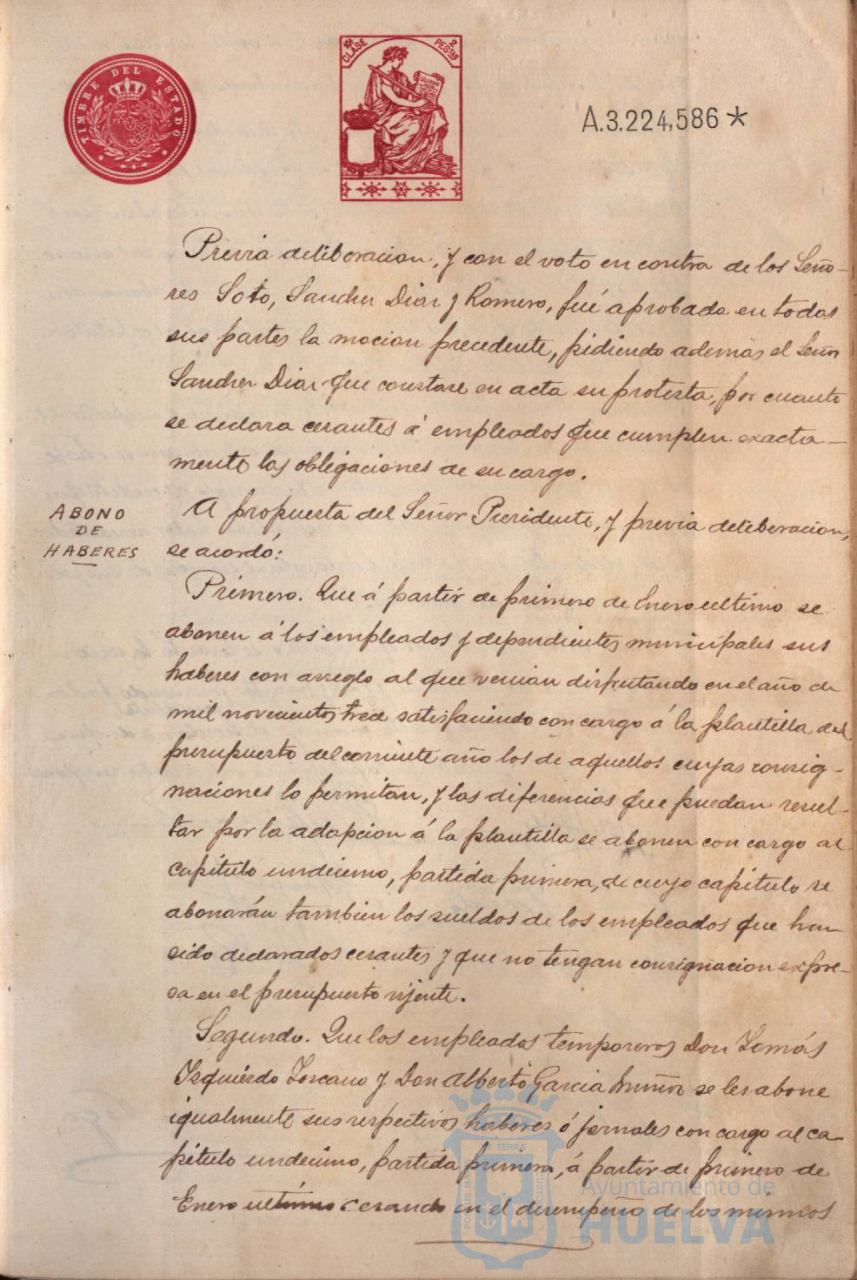 TIMBRE DEL ESTADO
10ª CLASE
2 PESTAS
A.3.224,586*
Previa deliberacion, y con el voto en contra de los Seño-
res Soto, Sanchez Diaz y Romero, fué aprobada en todas
sus partes la mocion precedente, pidiendo además el Señor
Sanchez Diaz que constase en acta su protesta, por cuanto
se declara cesantes á empleados que cumplen exacta-
mente las obligaciones de su cargo.
ABONO
DE
HABERES
A propuesta del Señor Presidente, y previa deliberacion,
se acordó:
Primero. Que á partir de primero de Enero ultimo se
abonen á los empleados y dependientes municipales sus
haberes con arreglo al que venian disfrutando en el año de
mil novecientos trece satisfaciendo con cargo á la plantilla del
presupuesto del corriente año los de aquellos cuyas consig-
naciones lo permitan, y las diferencias que puedan resul-
tar por la adapcion á la plantilla se abonen con cargo al
capitulo undecimo, partida primera, de cuyo capitulo se
abonarán tambien los sueldos de los empleados que han
sido declarados cesantes y que no tengan consignacion expre-
sa en el presupuesto vijente.
Segundo. Que los empleados temporeros Don Tomás
Izquierdo Toscano y Don Alberto Garcia Muñoz se les abone
igualmente sus respectivos haberes ó jornales con cargo al ca-
pitulo undecimo, partida primera, á partir de primero de
Enero ultimo cesando en el desempeño de los mismos
Ayuntamiento de
HUELVA